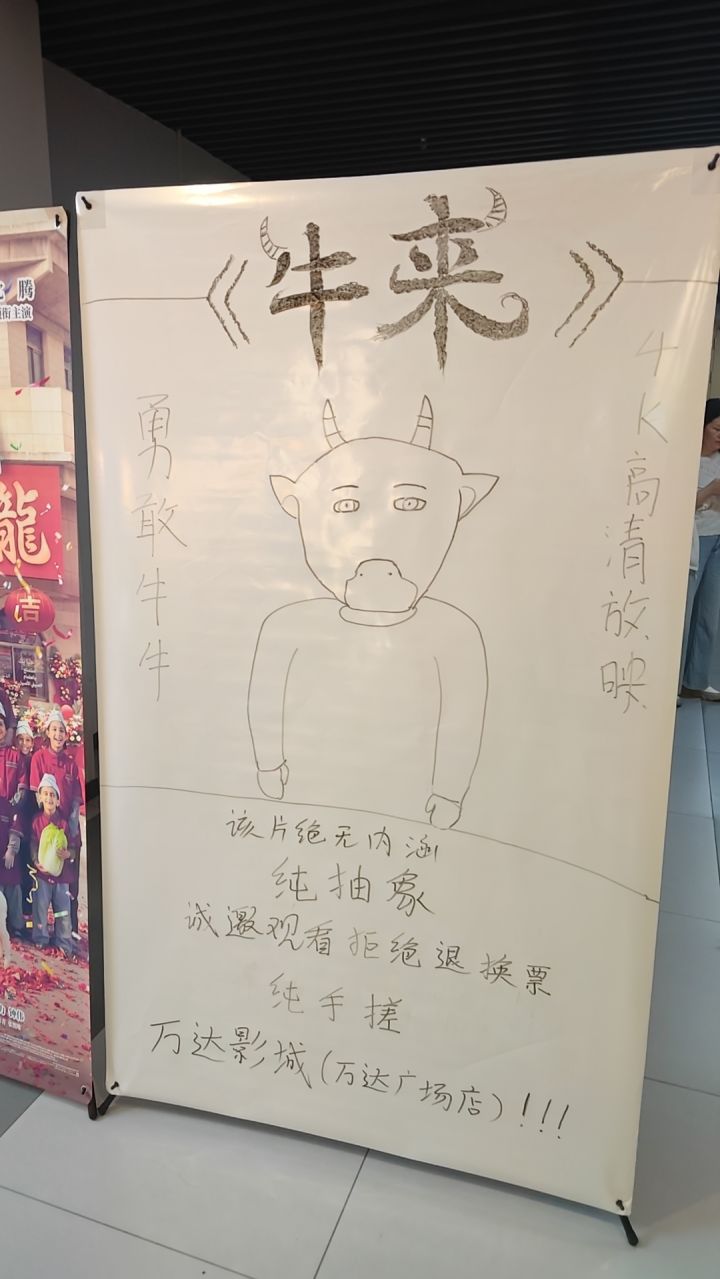 《牛来》
勇敢牛牛
4K高清放映
该片绝无内涵
纯抽象
诚邀观看拒绝退换票
纯手搓
万达影城(万达广场店)!!!
腾
主演
龍
吉